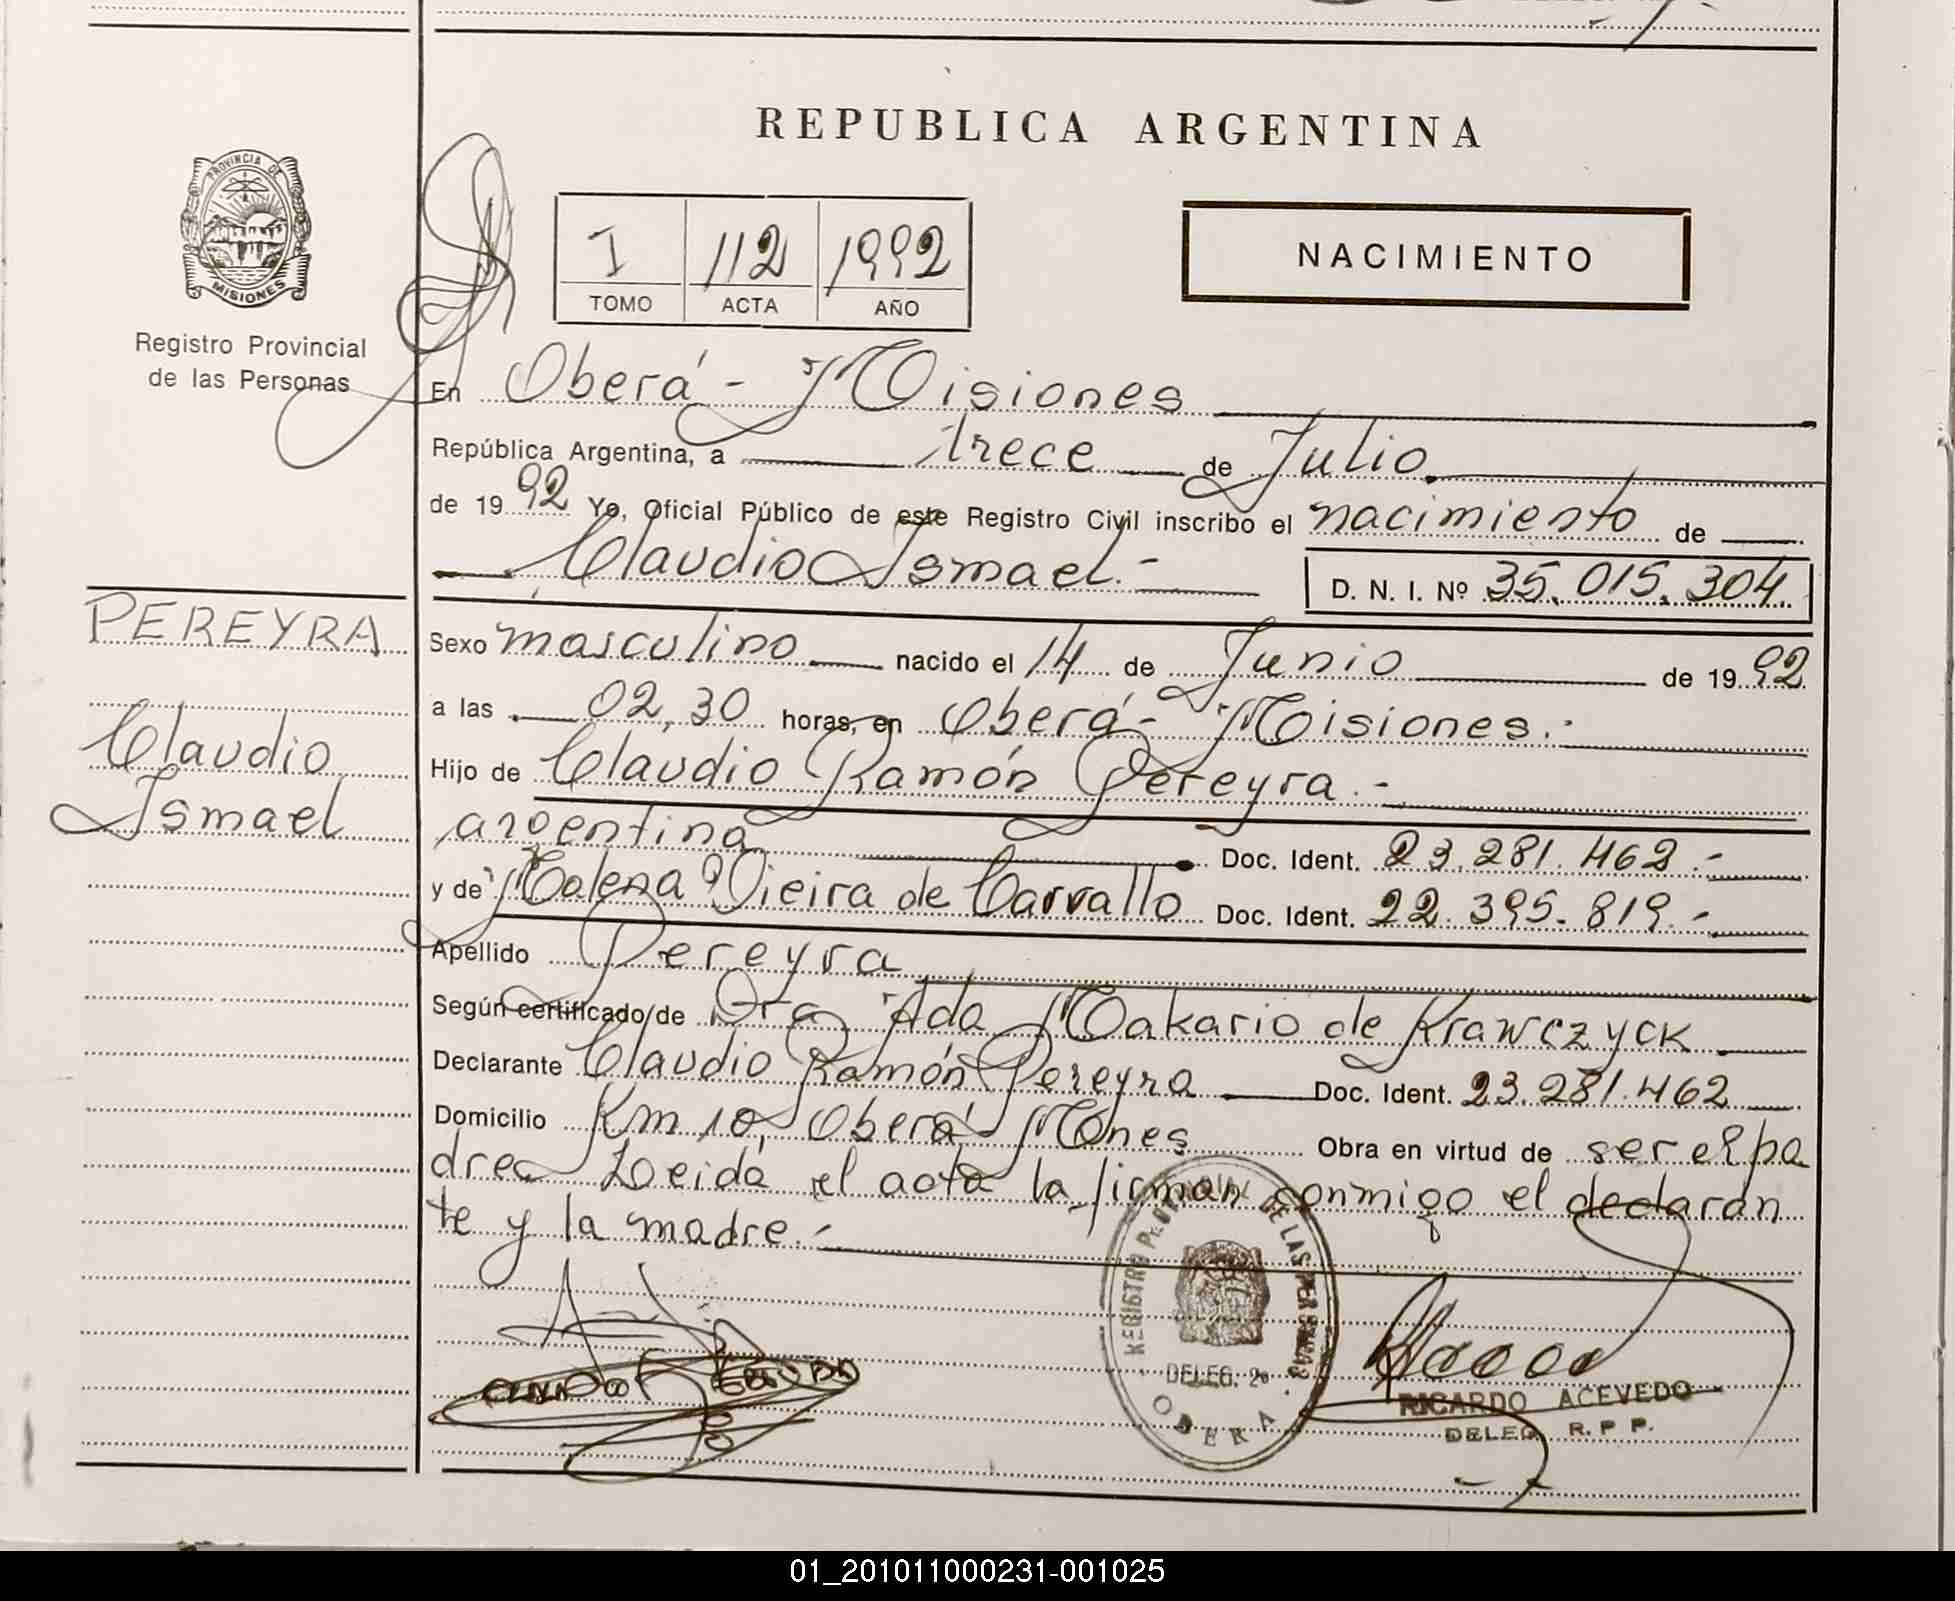 REPUBLICA ARGENTINA
PROVINCIA DE
MISIONES
Registro Provincial
de las Personas
I 112 1992
TOMO ACTA AÑO
NACIMIENTO
En Oberá - Misiones
República Argentina, a trece de Julio
de 1992 Yo, Oficial Público de este Registro Civil inscribo el nacimiento de
Claudio Ismael.-
D. N. I. Nº 35.015.304.
PEREYRA
Claudio
Ismael
Sexo masculino nacido el 14 de Junio de 1992
a las 02,30 horas, en Oberá - Misiones.-
Hijo de Claudio Ramón Pereyra.-
argentina Doc. Ident. 23.281.462.-
y de Malena Vieira de Carvallo Doc. Ident. 22.395.819.-
Apellido Pereyra
Según certificado de Dra Ada Makario de Krawczyck
Declarante Claudio Ramón Pereyra Doc. Ident. 23.281.462
Domicilio Km 10, Oberá Mones Obra en virtud de ser el pa
dre. Leida el acta la firman conmigo el declaran
te y la madre.-
REGISTRO PROVINCIAL DE LAS PERSONAS
DELEG. 2ª
OBERA
RICARDO ACEVEDO
DELEG. R. P. P.
01_201011000231-001025